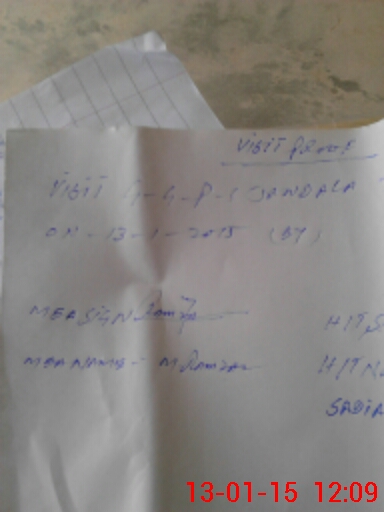 VISIT PROOF
VISIT G-G-P-S JANDALA
ON-13-1-2015 (BY)
MEA SIGN Ramzan
HIT S
MEA NAME- M Ramzan
HIT NA
SADIA
13-01-15 12:09